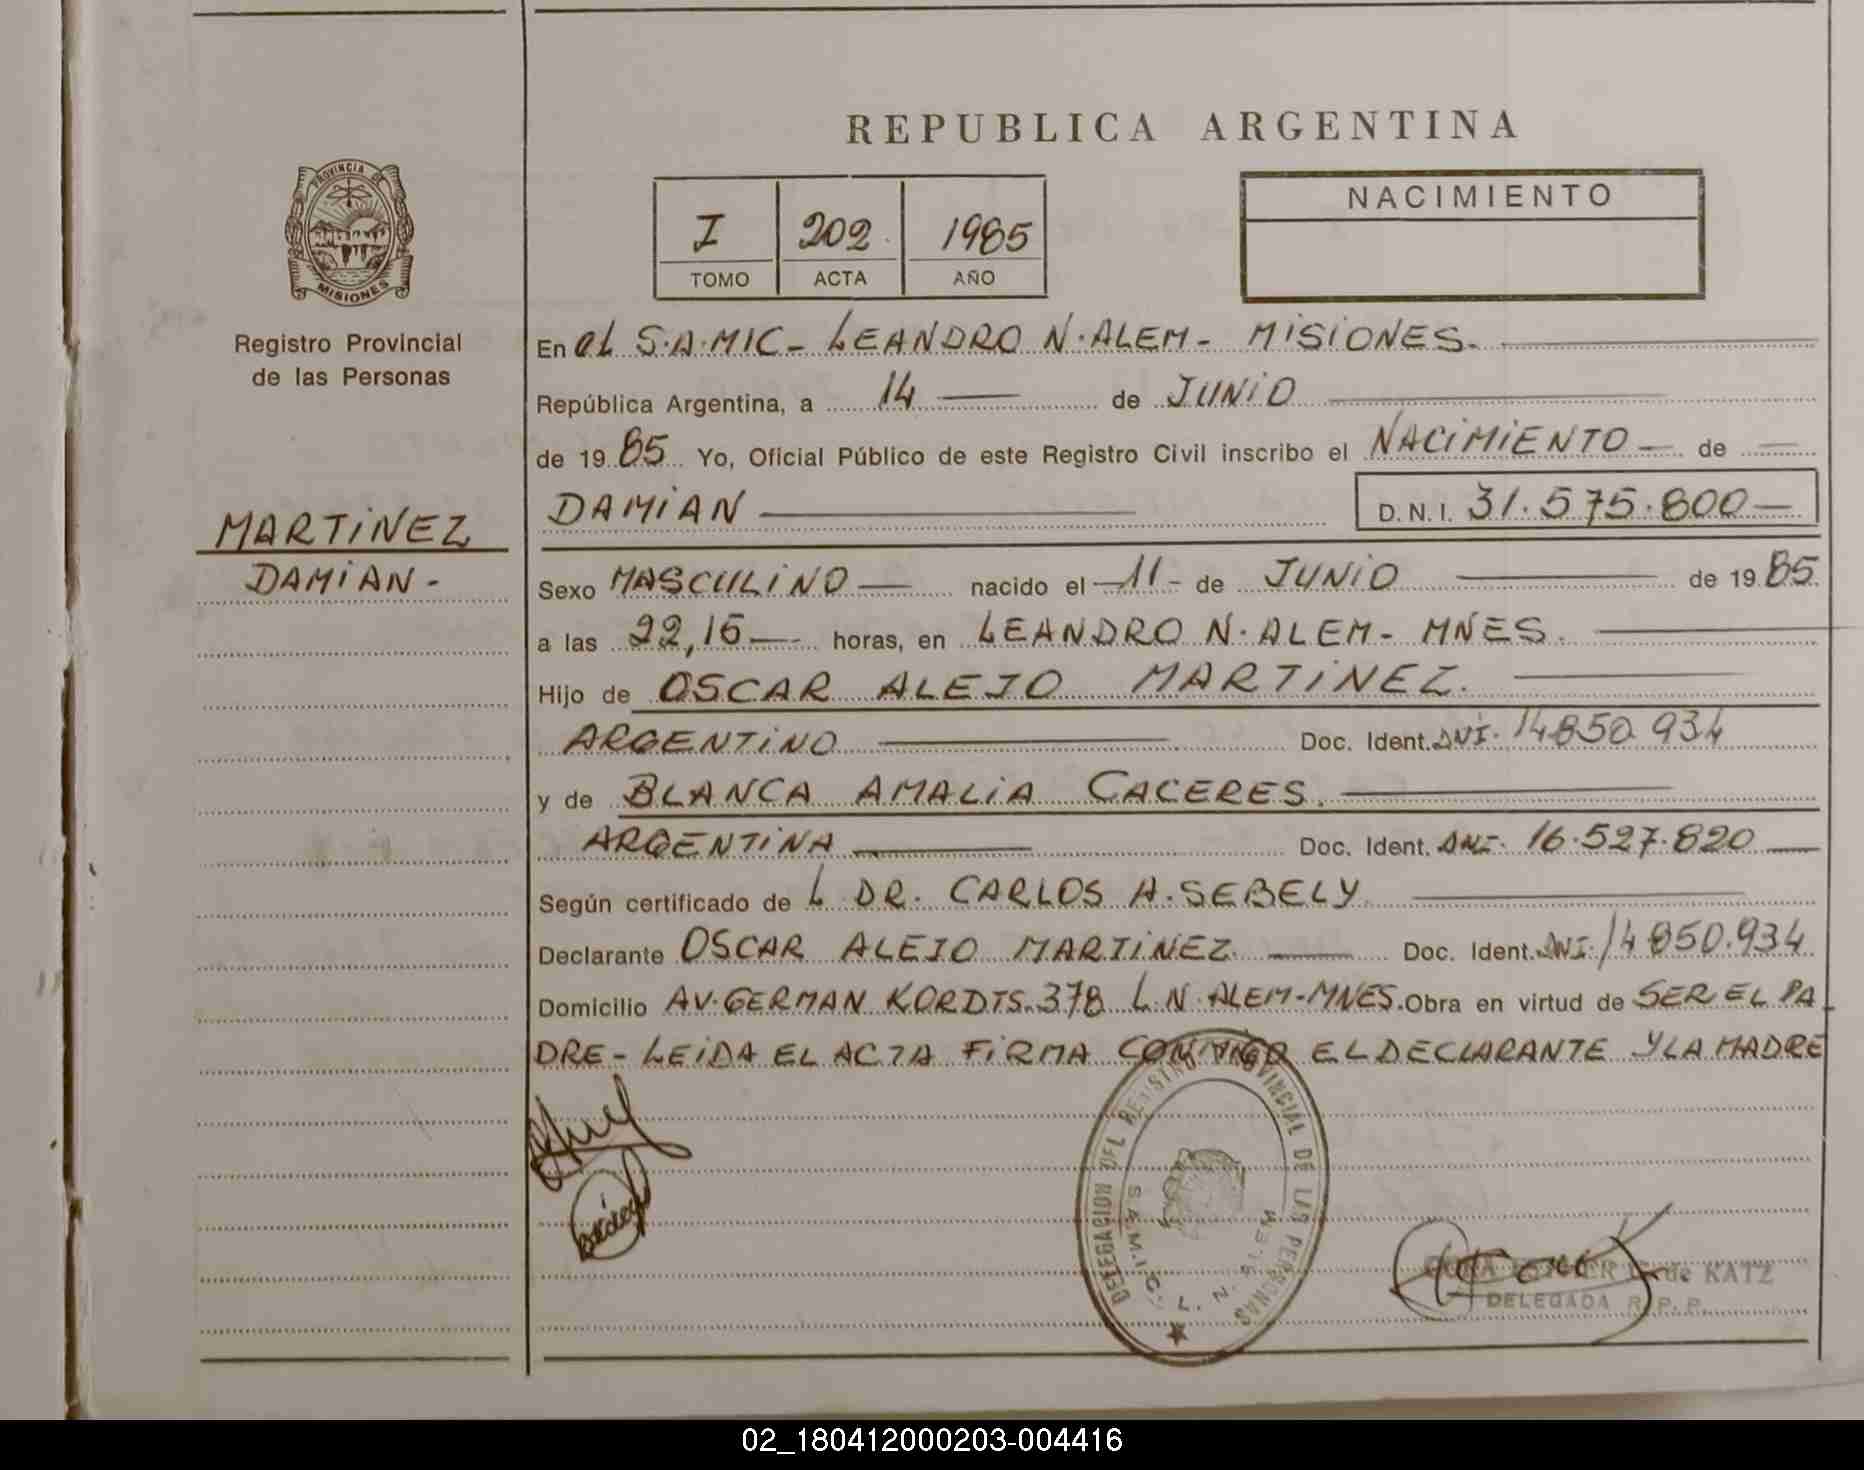 REPUBLICA ARGENTINA
PROVINCIA DE
MISIONES
Registro Provincial
de las Personas
I 202 1985
TOMO ACTA AÑO
NACIMIENTO
En el S.A.MIC- LEANDRO N. ALEM- MISIONES.
República Argentina, a 14 de JUNIO
de 19 85 Yo, Oficial Público de este Registro Civil inscribo el NACIMIENTO de
DAMIAN D.N.I. 31.575.800
MARTINEZ
DAMIAN-
Sexo MASCULINO nacido el 11 de JUNIO de 19 85
a las 22,15 horas, en LEANDRO N. ALEM- MNES.
Hijo de OSCAR ALEJO MARTINEZ.
ARGENTINO Doc. Ident. DNI. 14850934
y de BLANCA AMALIA CACERES.
ARGENTINA Doc. Ident. DNI- 16.527.820
Según certificado de L DR. CARLOS A. SEBELY
Declarante OSCAR ALEJO MARTINEZ Doc. Ident. DNI. 14850.934
Domicilio AV. GERMAN KORDTS. 378 L.N. ALEM-MNES. Obra en virtud de SER EL PA-
DRE- LEIDA EL ACTA FIRMA CONMIGO EL DECLARANTE Y LA MADRE
DELEGACION DEL REGISTRO PROVINCIAL DE LAS PERSONAS
S.A.M.I.C. L. N. ALEM
de KATZ
DELEGADA R.P.P.
02_180412000203-004416